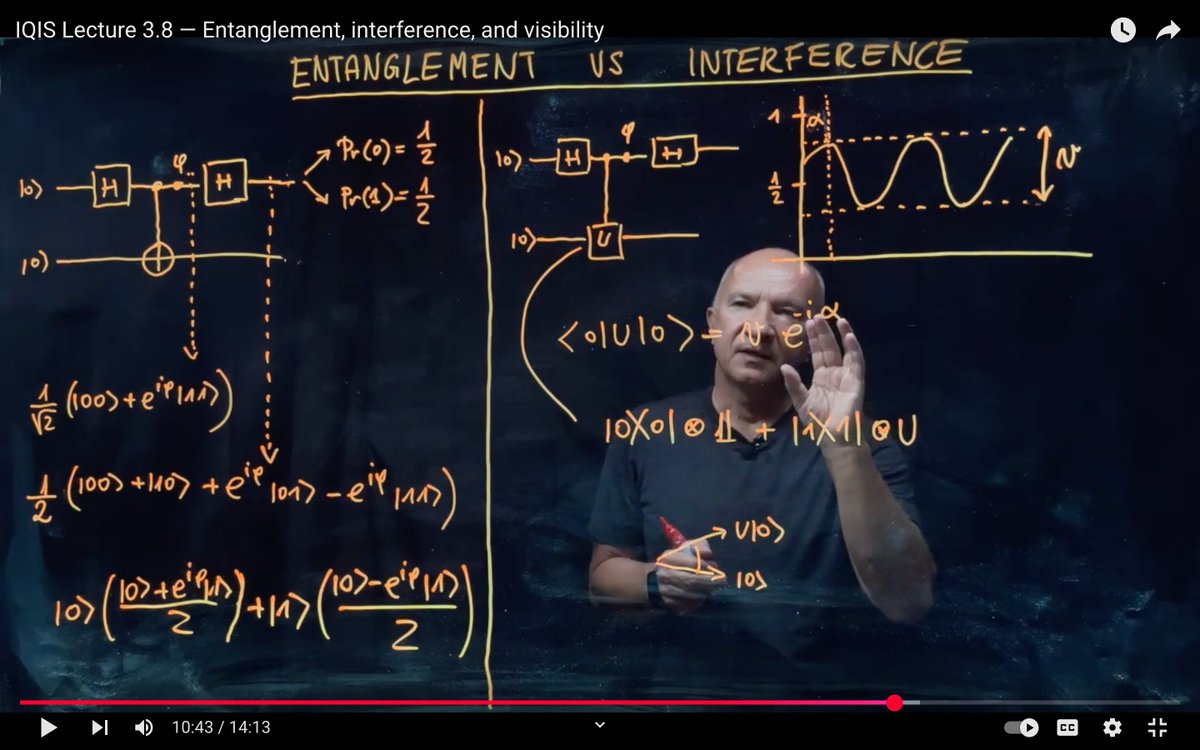 IQIS Lecture 3.8 — Entanglement, interference, and visibility
ENTANGLEMENT VS INTERFERENCE
|0⟩ H φ H
Pr(0) = 1/2
Pr(1) = 1/2
|0⟩
1/√2 (|00⟩ + e^{iφ}|11⟩)
1/2 (|00⟩ + |10⟩ + e^{iφ}|01⟩ - e^{iφ}|11⟩)
|0⟩((|0⟩+e^{iφ}|1⟩)/2) + |1⟩((|0⟩-e^{iφ}|1⟩)/2)
|0⟩ H φ H
|0⟩ U
1 α
1/2
v
⟨0|U|0⟩ = v e^{-iα}
|0⟩⟨0| ⊗ 𝟙 + |1⟩⟨1| ⊗ U
U|0⟩
|0⟩
10:43 / 14:13
CC